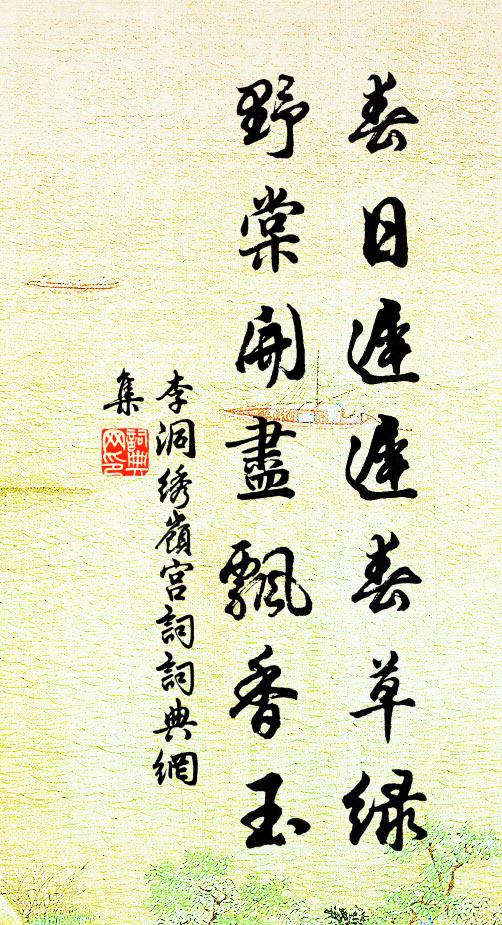 春日遲遲春草綠
野棠開盡飄香玉
李洞綉嶺宮詞詞典網
集
詞典網印